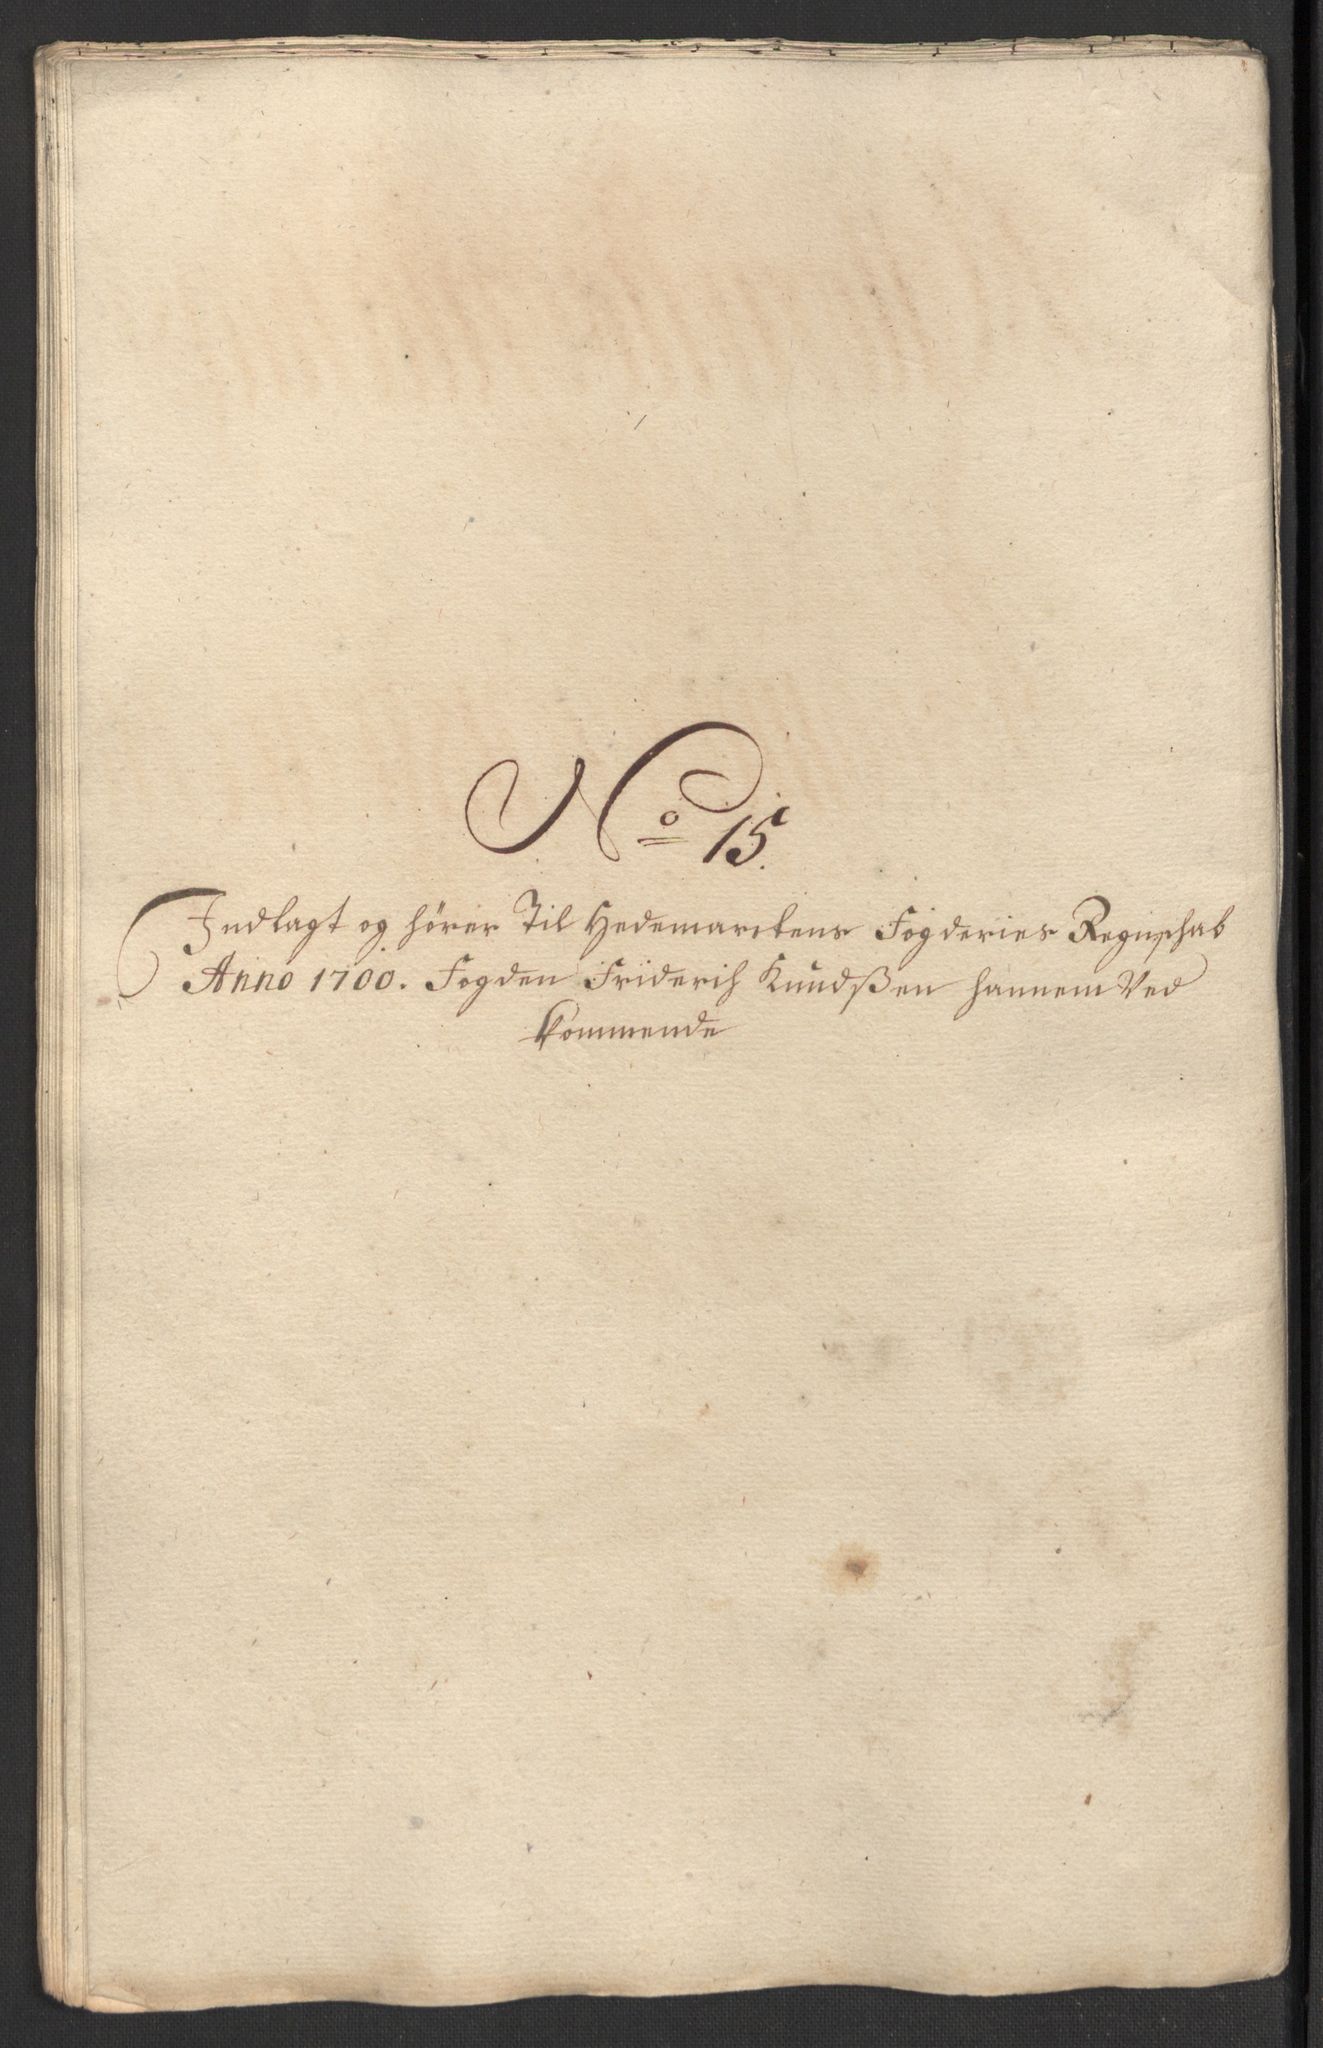 No 15.
Indlagt og hører Til Hedemarckens Fogderies Regnschab
Anno 1700. Fogden Friderich Knudsßen hannem Ved
kommende